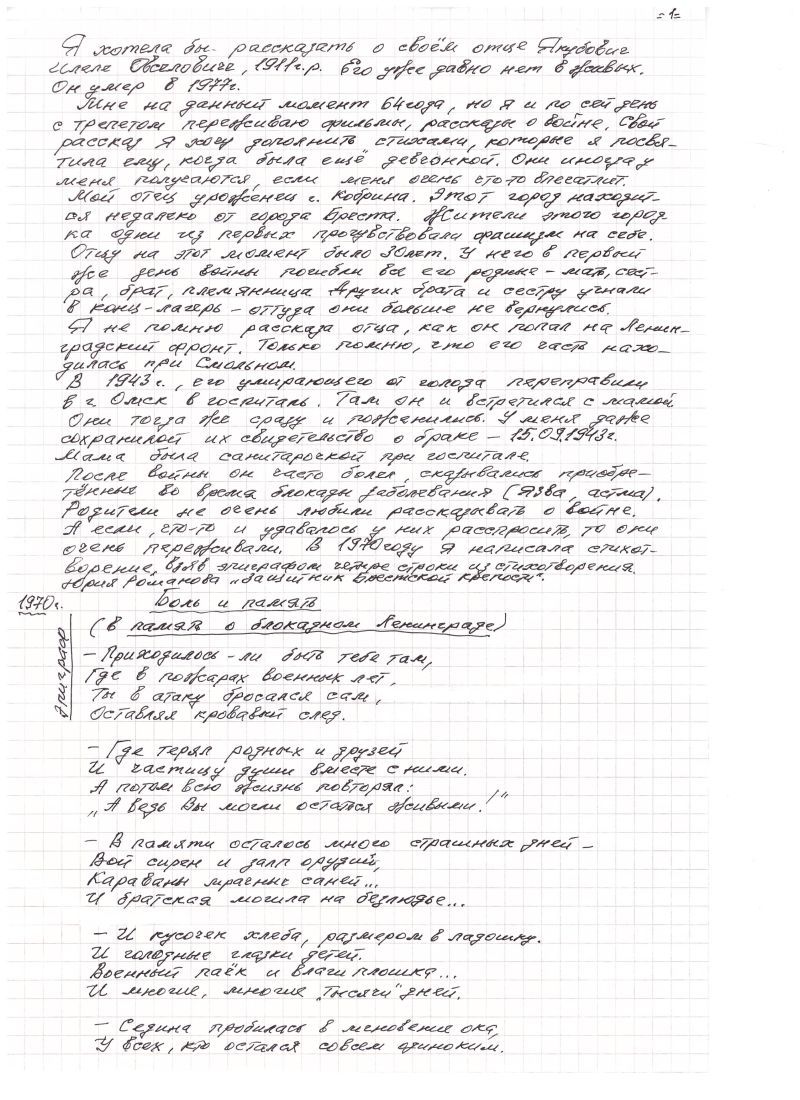 =1=
Я хотела бы рассказать о своём отце Якубович
Иделе Овселовиче, 1911г.р. Его уже давно нет в живых.
Он умер в 1977г.
Мне на данный момент 64 года, но я и по сей день
с трепетом переживаю фильмы, рассказы о войне. Свой
рассказ я хочу дополнить стихами, которые я посвя-
тила ему, когда была ещё девчонкой. Они иногда у
меня получаются, если меня очень что-то впечатлит.
Мой отец уроженец г. Кобрина. Этот город находит-
ся недалеко от города Бреста. Жители этого город
ка одни из первых прочувствовали фашизм на себе.
Отцу на этот момент было 30лет. У него в первый
же день войны погибли все его родные – мать, сест-
ра, брат, племянница. Других брата и сестру угнали
в конц-лагерь – оттуда они больше не вернулись.
Я не помню рассказа отца, как он попал на Ленин-
градский фронт. Только помню, что его часть нахо-
дилась при Смольном.
В 1943г., его умирающего от голода переправили
в г. Омск в госпиталь. Там он и встретился с мамой.
Они тогда же сразу и поженились. У меня даже
сохранилось их свидетельство о браке – 15.09.1943г.
Мама была санитарочкой при госпитале.
После войны он часто болел, сказывались приобре-
тённые во время блокады заболевания (язва, астма).
Родители не очень любили рассказывать о войне.
А если, что-то и удавалось у них расспросить, то они
очень переживали. В 1970году я написала стихот-
ворение, взяв эпиграфом четыре строки из стихотворения
Юрия Романова „Защитник Брестской крепости".
1970г. Боль и память
(в память о блокадном Ленинграде)
Эпиграф
– Приходилось-ли быть тебе там,
Где в пожарах военных лет,
Ты в атаку бросался сам,
Оставляя кровавый след.
– Где терял родных и друзей
И частицу души вместе с ними.
А потом всю жизнь повторял:
„А ведь Вы могли остаться живыми!"
– В памяти осталось много страшных дней –
Вой сирен и залп орудий,
Караваны мрачных саней...
И братская могила на безлюдье...
– И кусочек хлеба, размером в ладошку.
И голодные глазки детей.
Военный паёк и влаги плошка...
И многие, многие „тысячи" дней.
– Седина пробилась в мгновение ока,
У всех, кто остался совсем одиноким.